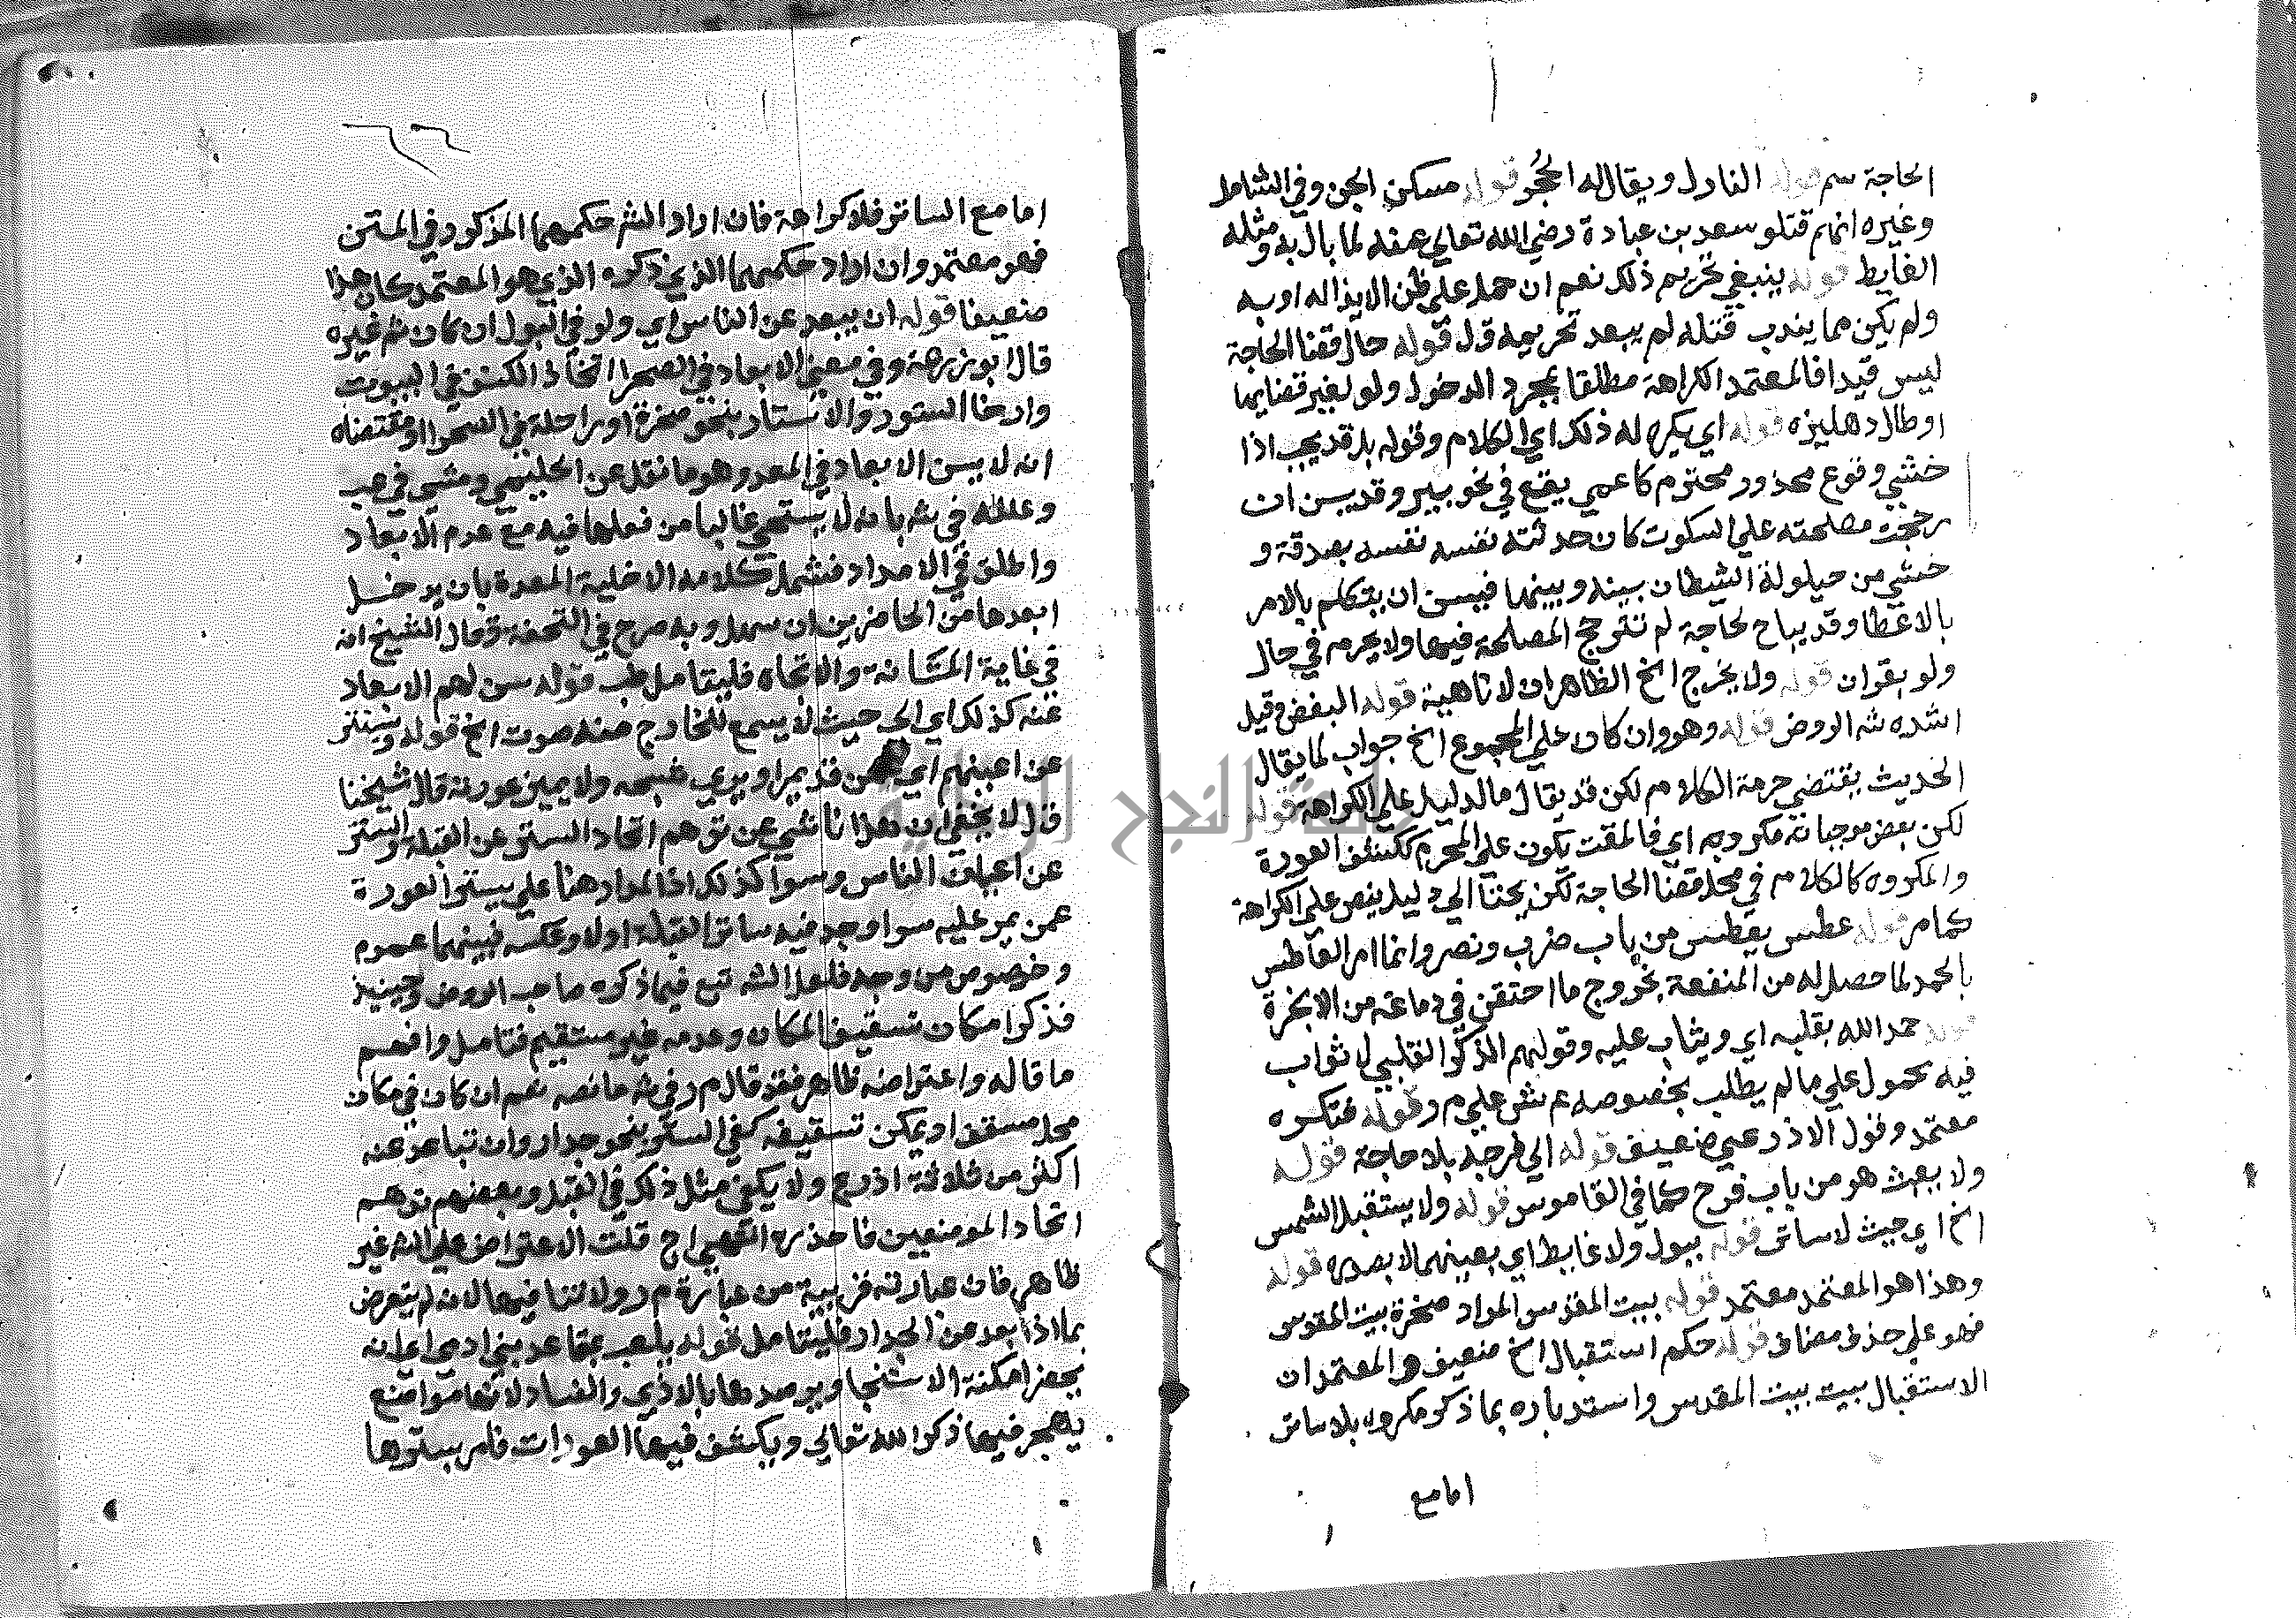 الحاجة سم قوله النازل ويقال له الجحر قوله مسكن الجن وفي الشامل
وغيره انهم قتلوا سعد بن عبادة رضي الله تعالي عنه لما بال به ومثله
الغايط قوله ينبغي تحريم ذلك نعم ان حمل علي ظن الايذاله او به
ولم يكن مما يندب قتله لم يبعد تحريمه ق ل قوله حال قضا الحاجة
ليس قيدا فالمعتمد الكراهة مطلقا بمجرد الدخول ولو لغير قضايها
او طال دهليزه قوله اي يكره له ذلك اي الكلام وقوله بل قد يجب اذا
خشي وقوع محذور محترم كاعمي يقع في نحو بير وقد يسن ان
رجحت مصلحته علي السكوت كان حدثته نفسه نفسه بصدقة و
خشي من حيلولة الشيطان بينه وبينها فيسن ان يتكلم بالامر
بالاعطا وقد يباح لحاجة لم تترجح المصلحة فيها ولا يحرم في حال
ولو بقران قوله ولا يخرج الخ الظاهر ان لا ناهية قوله البغض وقيل
اشده شه الروض قوله وهو وان كان علي المجموع الخ جواب لما يقال
الحديث يقتضي حرمة الكلام لكن قد يقال ما الدليل علي الكراهة قوله
لكن بعض موجباته مكروه اي فالمقت يكون علي المحرم ككشف العورة
والمكروه كالكلام في محل قضا الحاجة لكن يحتا الي دليل ينص علي الكراهة
كما مر قوله عطس يعطس من باب ضرب ونصر وانما امر العاطس
بالحمد لما حصل له من المنفعة بخروج ما احتقن في دماغه من الابخرة
قوله حمد الله بقلبه اي ويثاب عليه وقولهم الذكر القلبي لا ثواب
فيه محمول علي ما لم يطلب بخصوصه ع ش علي م ر وقوله فتكره
معتمد وقول الاذرعي ضعيف قوله الي فرجه بلا حاجة قوله
ولا يعبث هو من باب فرح كما في القاموس قوله ولا يستقبل الشمس
الخ اي حيث لا ساتر قوله ببول ولا غايط اي بعينهما لا بصدره قوله
وهذا هو المعتمد معتمد قوله بيت المقدس المراد صخرة بيت المقدس
فهو علي حذف مضاف قوله حكم استقبال الخ ضعيف والمعتمد ان
الاستقبال ببيت بيت المقدس واستدباره بما ذكر مكروه بلا ساتر
اما مع
اما مع الساتر فلا كراهة فان اراد الش حكمهما المذكور في المتن
فهو معتمد وان اراد حكمهما الذي ذكره الذي هو المعتمد كان هذا
ضعيفا قوله ان يبعد عن الناس اي ولو في البول ان كان ثم غيره
قال ابو زرعة وفي معني الابعاد في الصحرا اتخاذ الكنف في البيوت
وارخا الستور والاستتار بنحو صخرة او راحلة في الصحرا ومقتضاه
انه لا يسن الابعاد في المعد وهو ما نقل عن الحليمي ومشي في عب
وعلله في شه بانه لا يستحي غالبا من فعلها فيه مع عدم الابعاد
واطلق في الامداد فشمل كلامه الاخلية المعدة بان يدخل
ابعدها من الحاضرين ان سهل وبه صرح في التحفة وقال الشيخ انه
في غاية المتانة والاتجاه فليتامل طب قوله سن لهم الابعاد
عنه كذلك اي الي حيث لا يسمع للخارج منه صوت الخ قوله ويستتر
عن اعينهم اي ممن قد يمر او يري شبحه ولا يميز عورته قال شيخنا
ق ل لا يخفي ان هذا ناشي عن توهم اتحاد الستر عن القبلة والستر
عن اعيان الناس وسوا كذلك اذ المراد هنا علي يستر العورة
عمن يمر عليه سوا وجد فيه ساتر القبلة اولا وعكسه فبينهما عموم
وخصوص من وجه فلعل الشه تبع فيما ذكره صاحب الروض وحينيذ
فذكر امكان تسقيف المكان وعدمه غير مستقيم فتامل وافهم
ما قاله واعتراضه ظاهر فقد قال م ر في شه ما نصه نعم ان كان في مكان
محل مسقف او يمكن تسقيفه كفي الستر بنحو جدار وان تباعد عنه
اكثر من ثلاثة اذرع ولا يكفي مثل ذلك في القبلة وبعضهم توهم
اتحاد الموضعين فاحذره انتهي اج قلت الاعتراض علي الشه غير
ظاهر فان عبارته قريبة من عبارة م ر ولا تنافيها لانه لم يتعرض
بما اذا بعد من الجدار فليتامل قوله يلعب بمقاعد بني ادم اي انه
يحضر امكنة الاستنجا ويرصدها بالاذي والفساد لانها مواضع
يهجر فيها ذكر الله تعالي ويكشف فيها العورات فامر بسترها